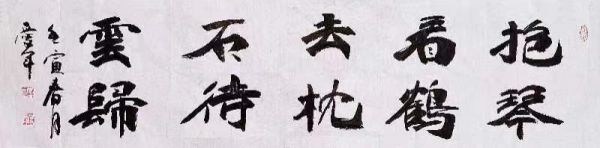 抱琴
看鶴
去枕
石待
雲歸
壬寅春月